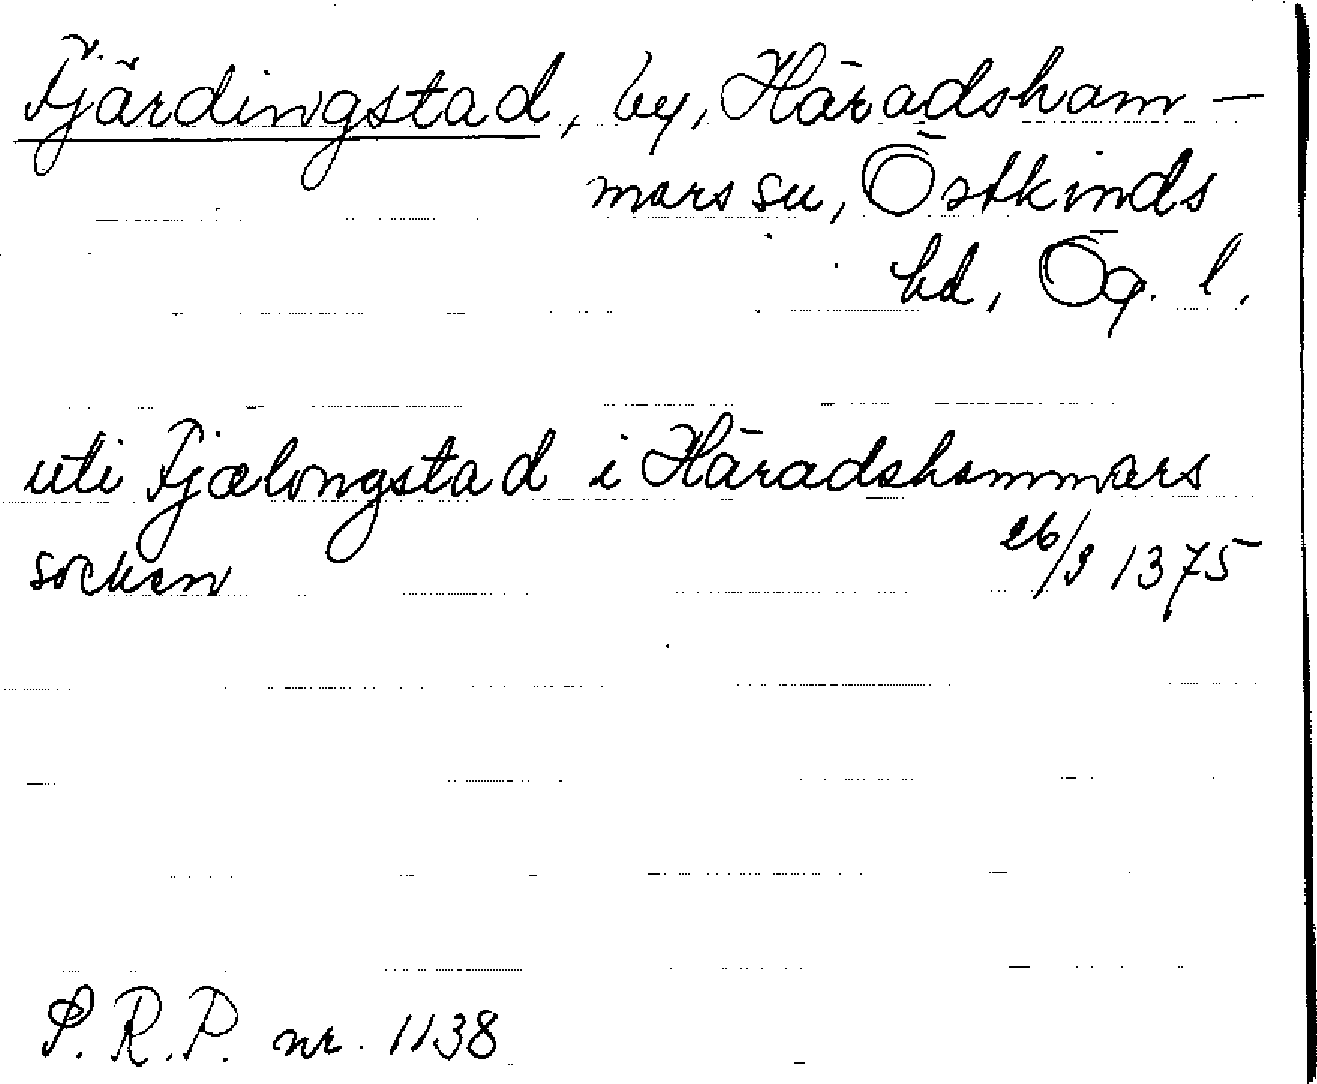 Fjärdingstad, by, Häradsham-
mars sn, Östkinds
hd, Ög. l.
uti Fjælongstad i Häradshammars
socken 26/9 1375
S.R.P. nr. 1138